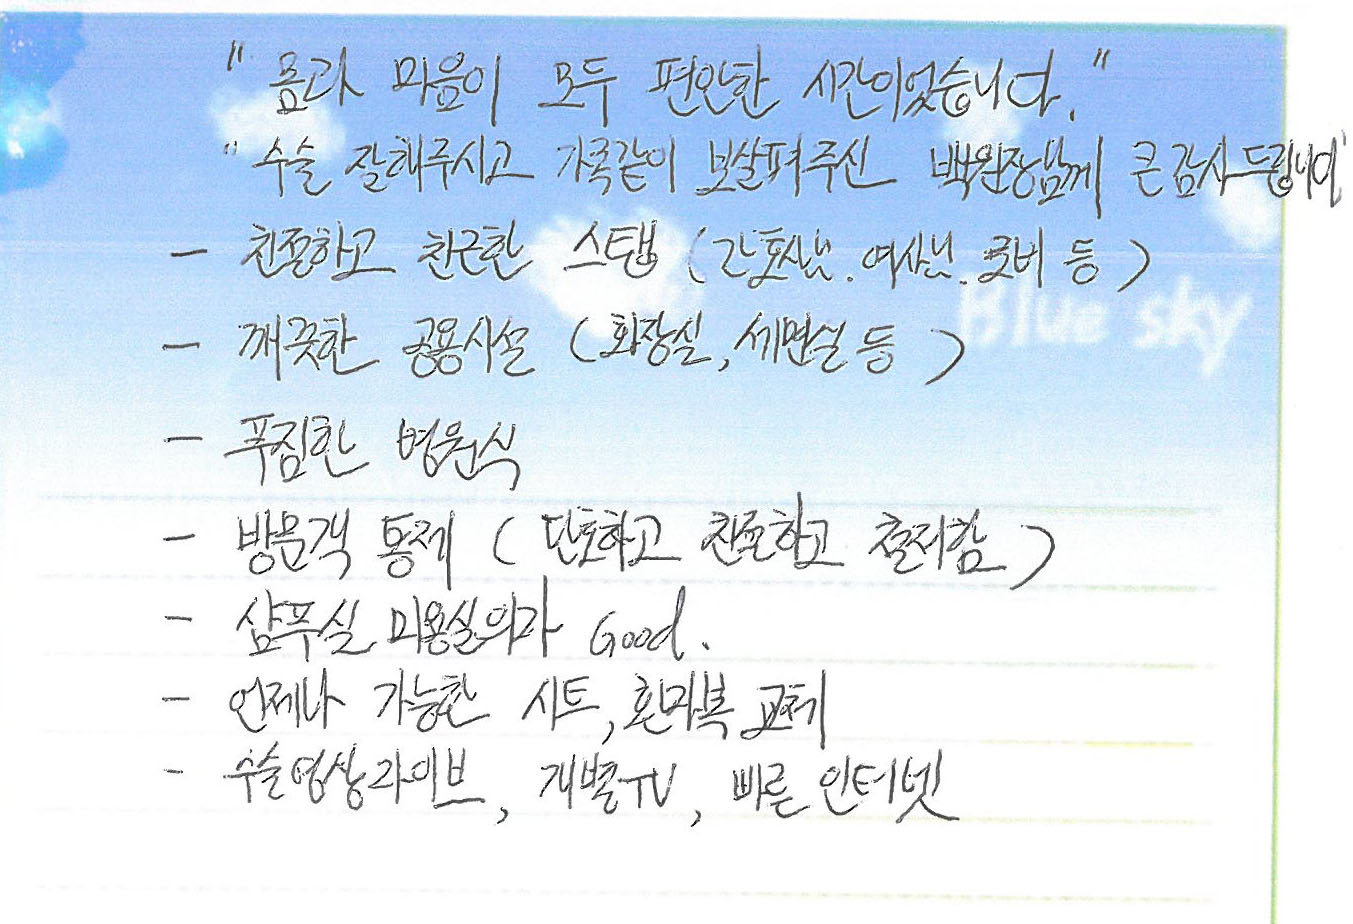 " 몸과 마음이 모두 편안한 시간이었습니다. "
" 수술 잘해주시고 가족같이 보살펴주신 백원장님께 큰 감사드립니다"
- 친절하고 친근한 스탭 (간호사님. 여사님. 로비 등)
Blue sky
- 깨끗한 공용시설 (화장실, 세면실 등)
- 푸짐한 병원식
- 방문객 통제 (단호하고 친절하고 철저함)
- 샴푸실 미용실의자 Good.
- 언제나 가능한 시트, 환자복 교체
- 수술영상라이브, 개별TV, 빠른 인터넷